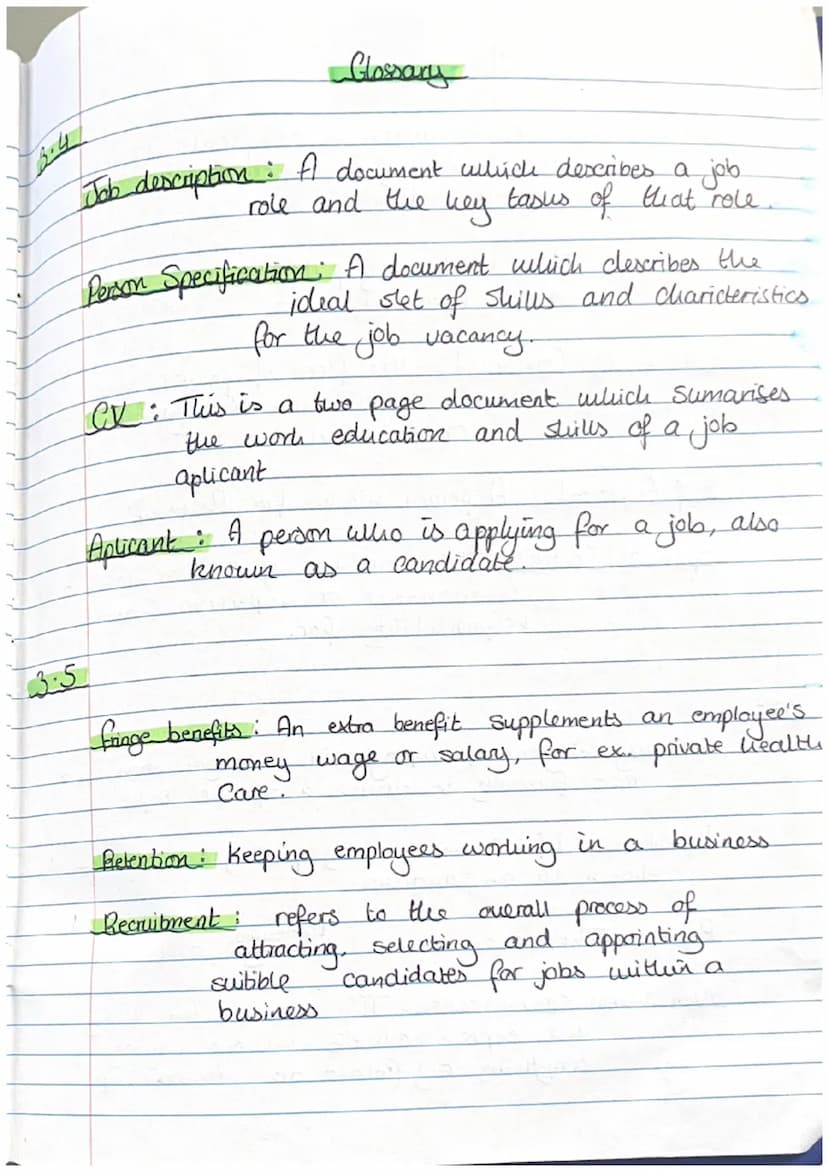 Glossary
3.4
Job description : A document which describes a job
role and the key tasks of that role.
Person Specification : A document which describes the
ideal set of skills and charicteristics
for the job vacancy.
CV : This is a two page document which sumarises
the work education and skills of a job
aplicant
Aplicant : A person who is applying for a job, also
known as a candidate.
3.5
fringe benefits : An extra benefit supplements an employee's
money wage or salary, for ex. private health
Care.
Retention : Keeping employees working in a business
Recruitment : refers to the overall process of
attracting, selecting and appointing
suitible candidates for jobs within a
business